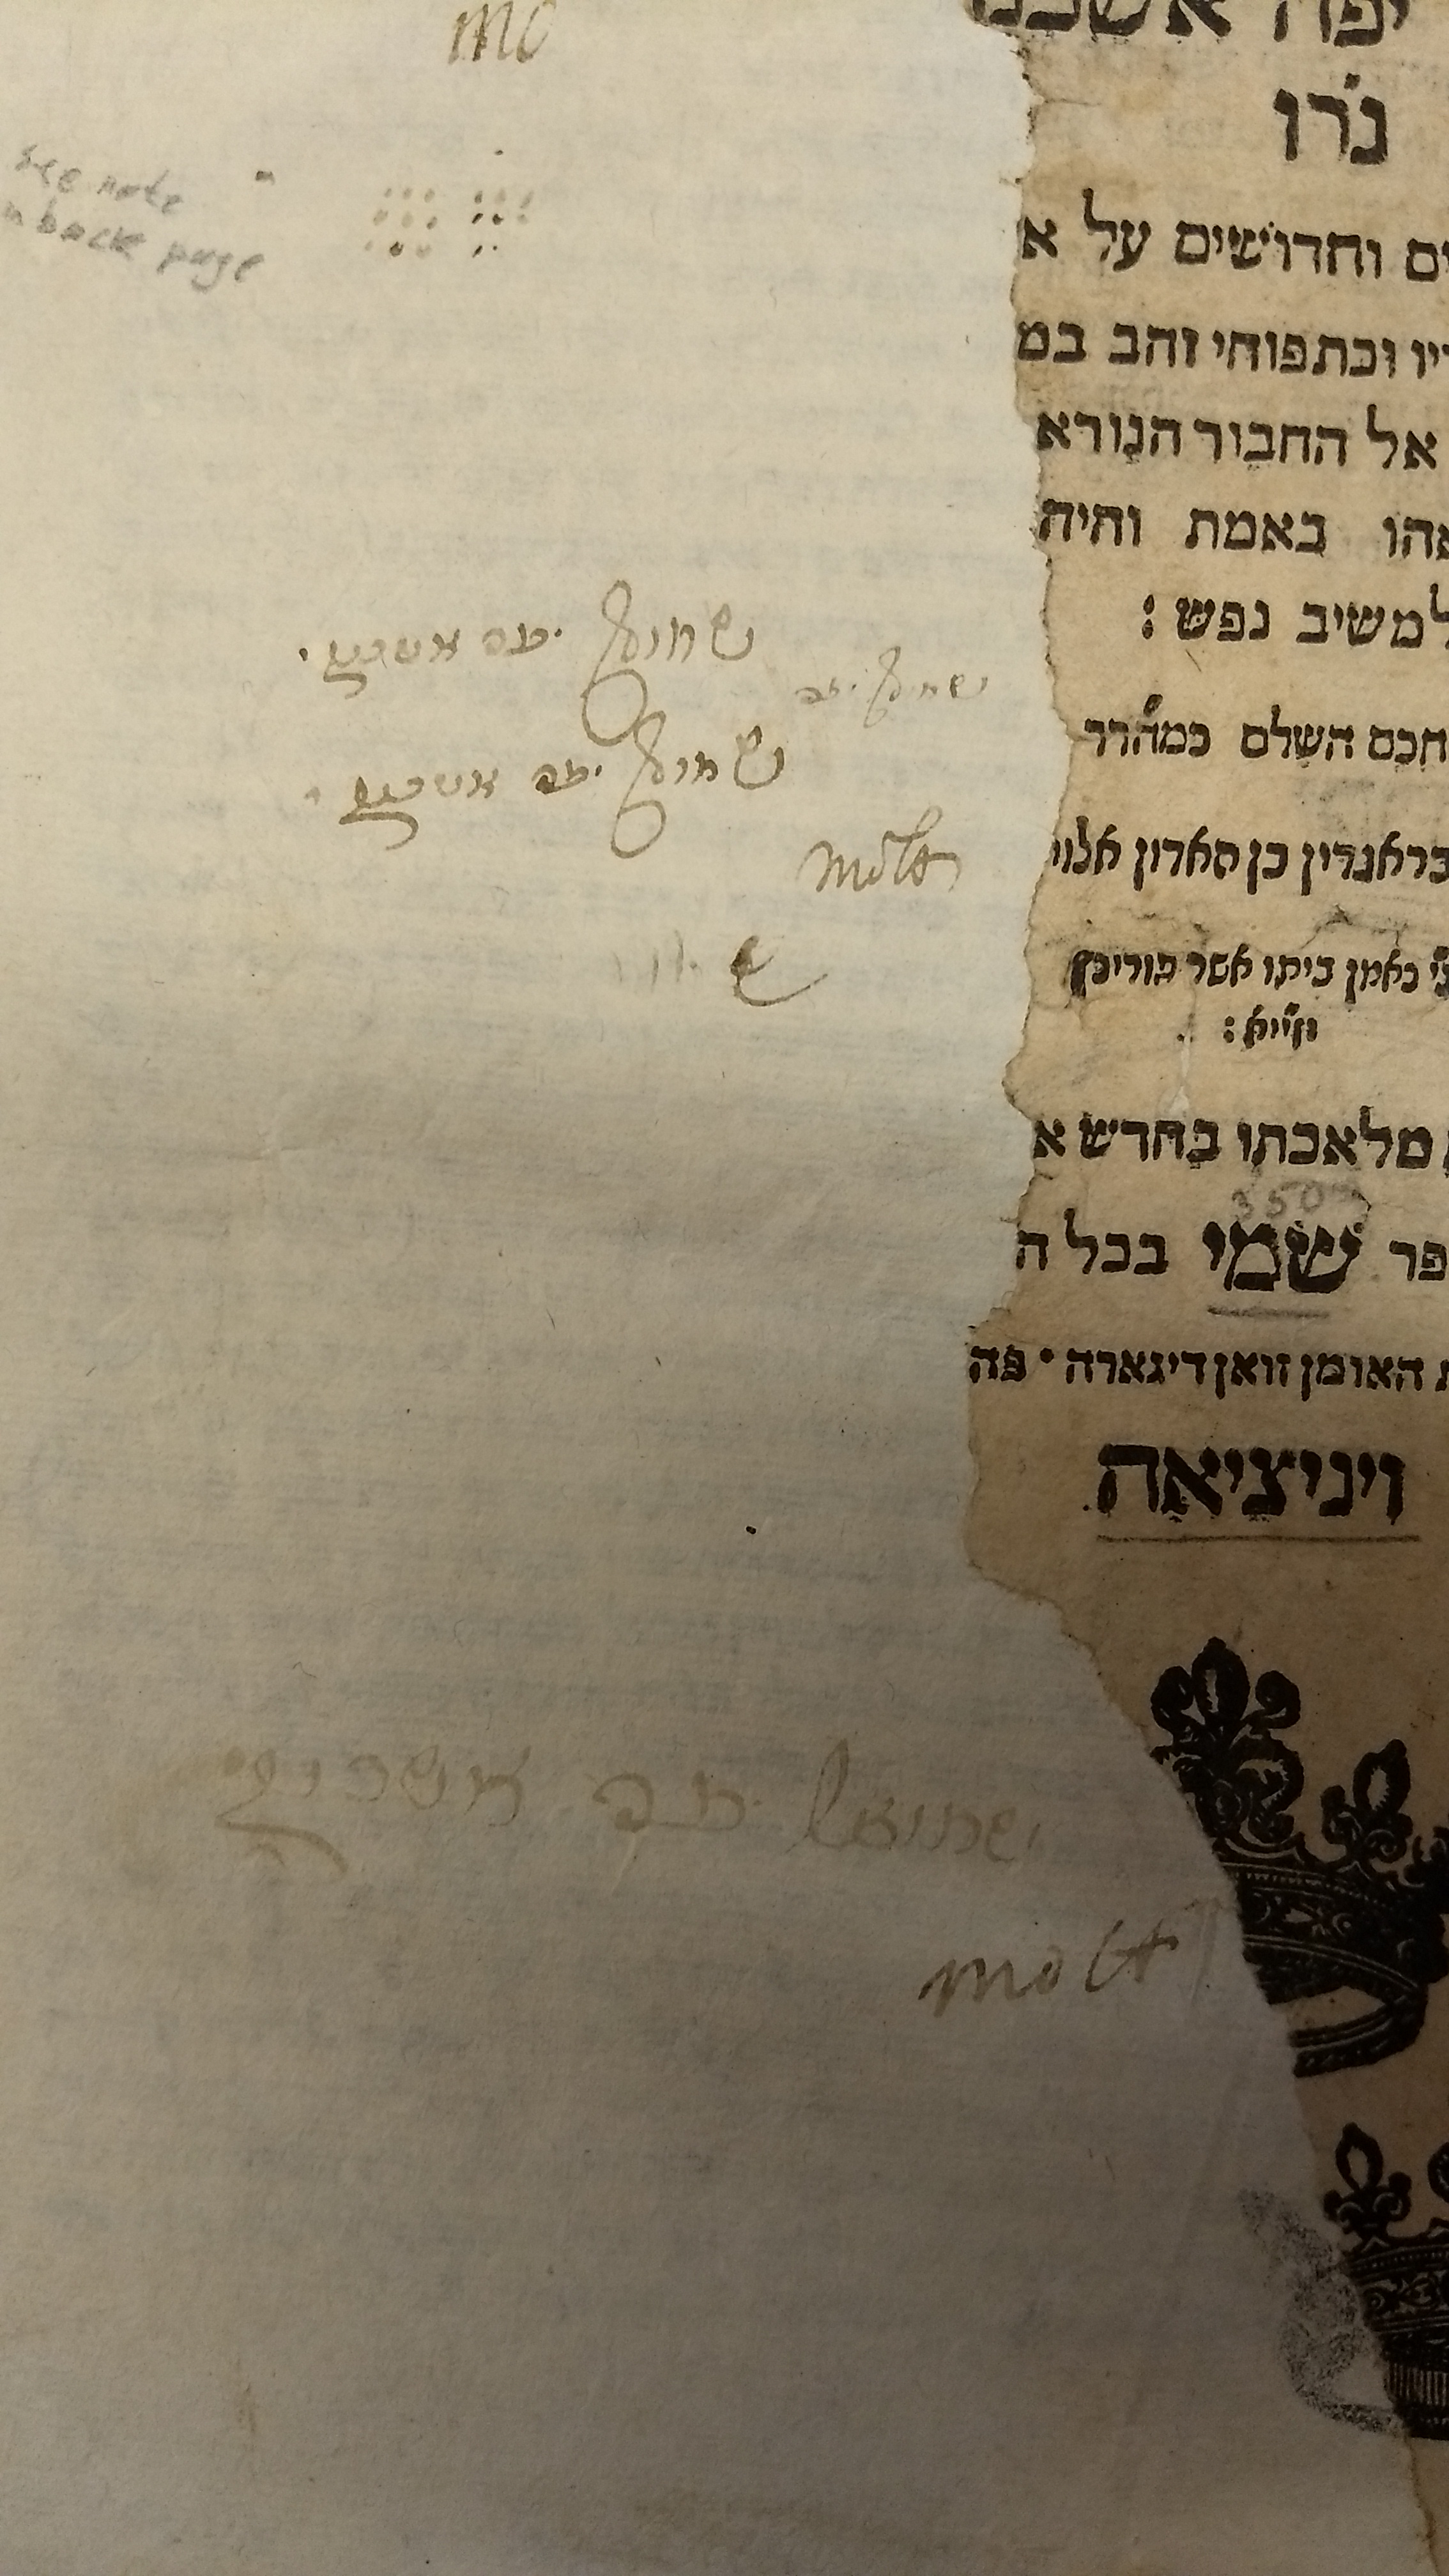 mo
see note
back page
יפה אשכנ
נרו
ים וחדושים על א
יו וכתפוחי זהב במ
אל החבור הנורא
אהו באמת והיה
למשיב נפש :
חכם השלם כמהרר
בראגדין בן
כאמן ביתו אשר
מלאכתו בחדש א
350
פר שמי בכל ה
האומן זואן דיגארה · פה
ויניציאה
שמואל יפה אשכנזי
שמואל יפה
שמואל יפה אשכנזי
molt
ש
שמואל יפה אשכנזי
molt